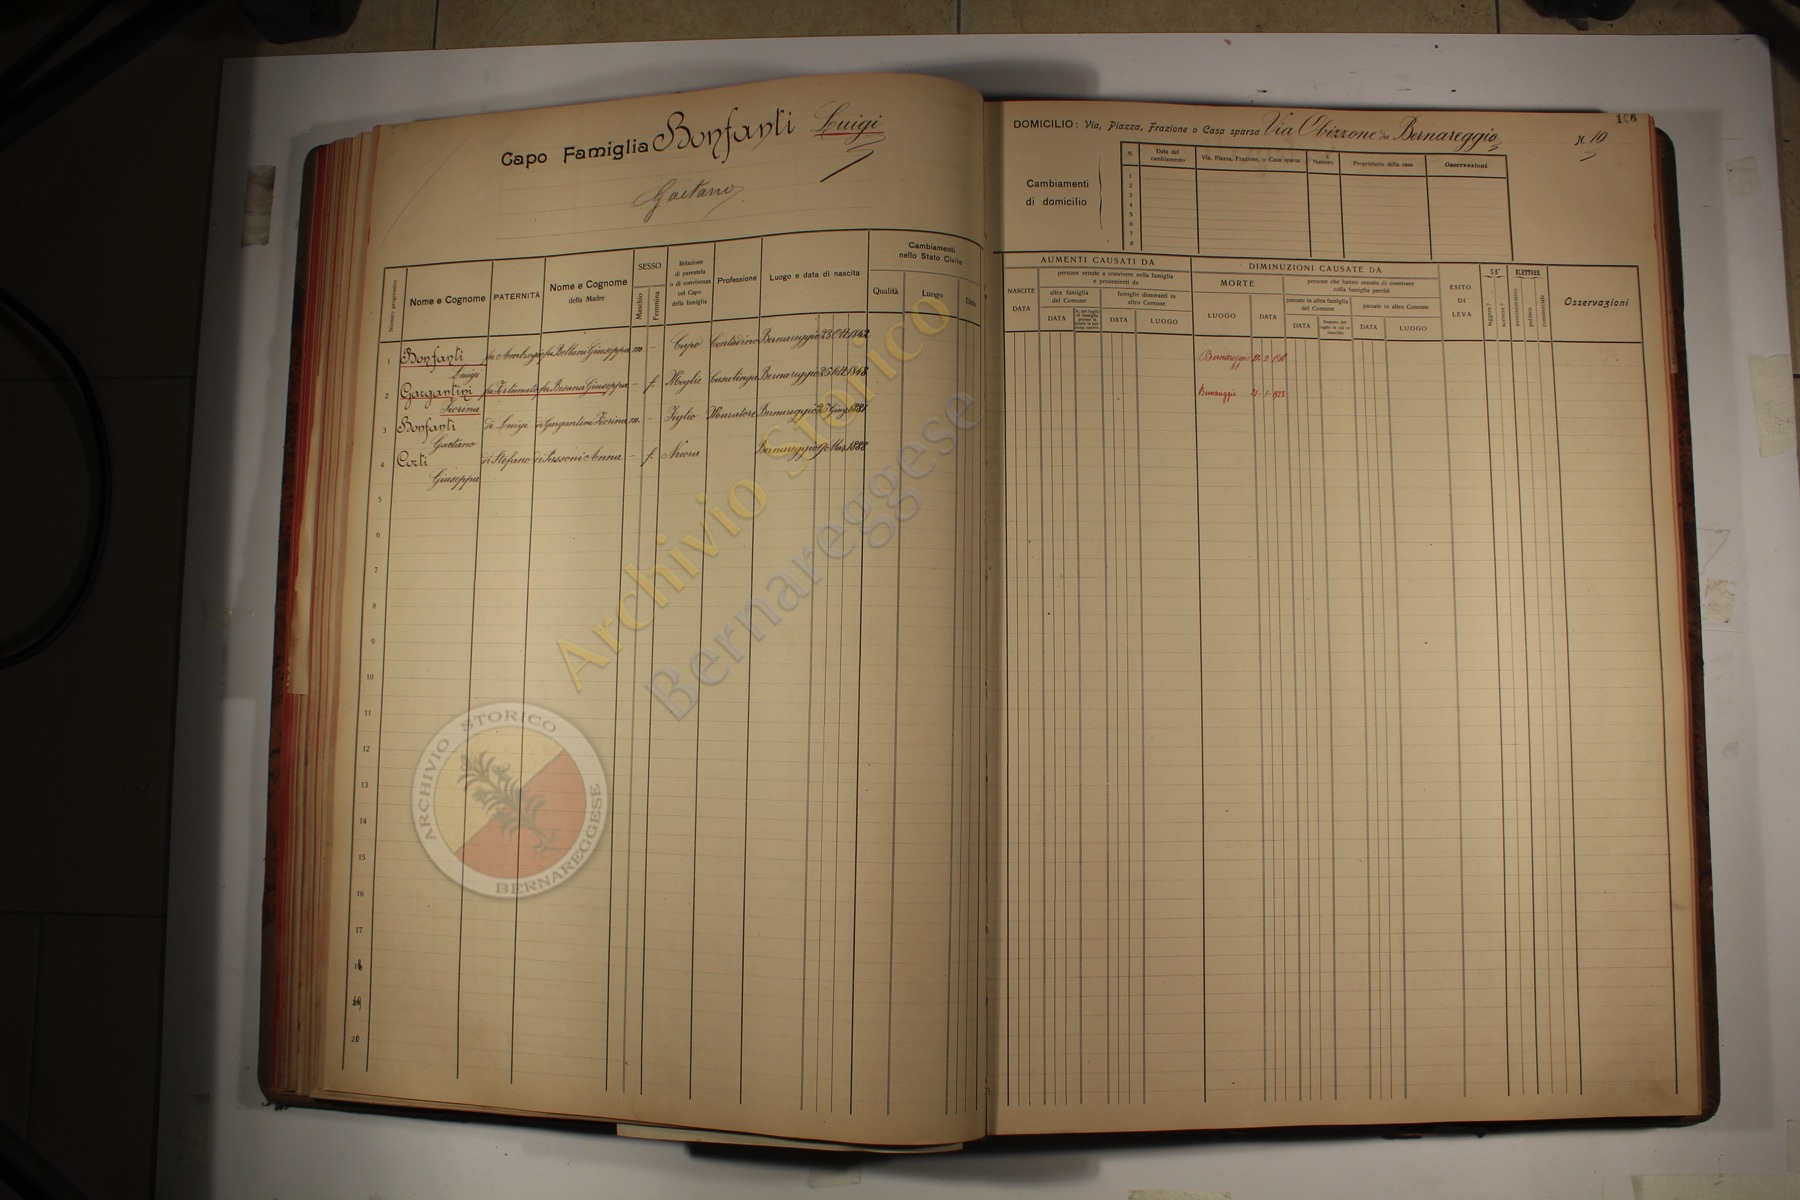 Capo Famiglia Bonfanti Luigi
Gaetano
Numero progressivo
Nome e Cognome
PATERNITÀ
Nome e Cognome
della Madre
SESSO
Maschio
Femmina
Relazione
di parentela
o di convivenza
col Capo
della famiglia
Professione
Luogo e data di nascita
Cambiamenti
nello Stato Civile
Qualità
Luogo
Data
1 Bonfanti fu Ambrogio fu Bellani Giuseppa m. - Capo Contadino Bernareggio 23 Ott. 1842
Luigi
2 Gargantini fu Fortunato fu Besana Giuseppa - f. Moglie Casalinga Bernareggio 25 Ott. 1848
Fiorina
3 Bonfanti di Luigi di Gargantini Fiorina m. - Figlio Muratore Bernareggio 1881
Gaetano
4 Corti di Stefano di Passoni Anna - f. Nuora Bernareggio Mar. 1888
Giuseppa
5
6
7
8
9
10
11
12
13
14
15
16
17
18
19
20
106
DOMICILIO: Via, Piazza, Frazione o Casa sparsa Via Obizzone da Bernareggio N. 10
Cambiamenti
di domicilio
N.
Data del
cambiamento
Via, Piazza, Frazione, o Casa sparsa
Numero
Proprietario della casa
Osservazioni
1
2
3
4
5
6
7
8
AUMENTI CAUSATI DA
NASCITE
DATA
persone venute a convivere nella famiglia
e provenienti da
altra famiglia
del Comune
DATA
famiglie dimoranti in
altro Comune
DATA
LUOGO
DIMINUZIONI CAUSATE DA
MORTE
LUOGO
DATA
persone che hanno cessato di convivere
colla famiglia perchè
passate in altra famiglia
del Comune
DATA
Numero del
foglio in cui si
inscrive
passate in altro Comune
DATA
LUOGO
ESITO
DI
LEVA
SA
leggere?
scrivere?
ELETTORE
amministrativo
politico
commerciale
Osservazioni
Bernareggio
Bernareggio 21-1-1928
Archivio Storico
Bernareggese
ARCHIVIO STORICO
BERNAREGGESE